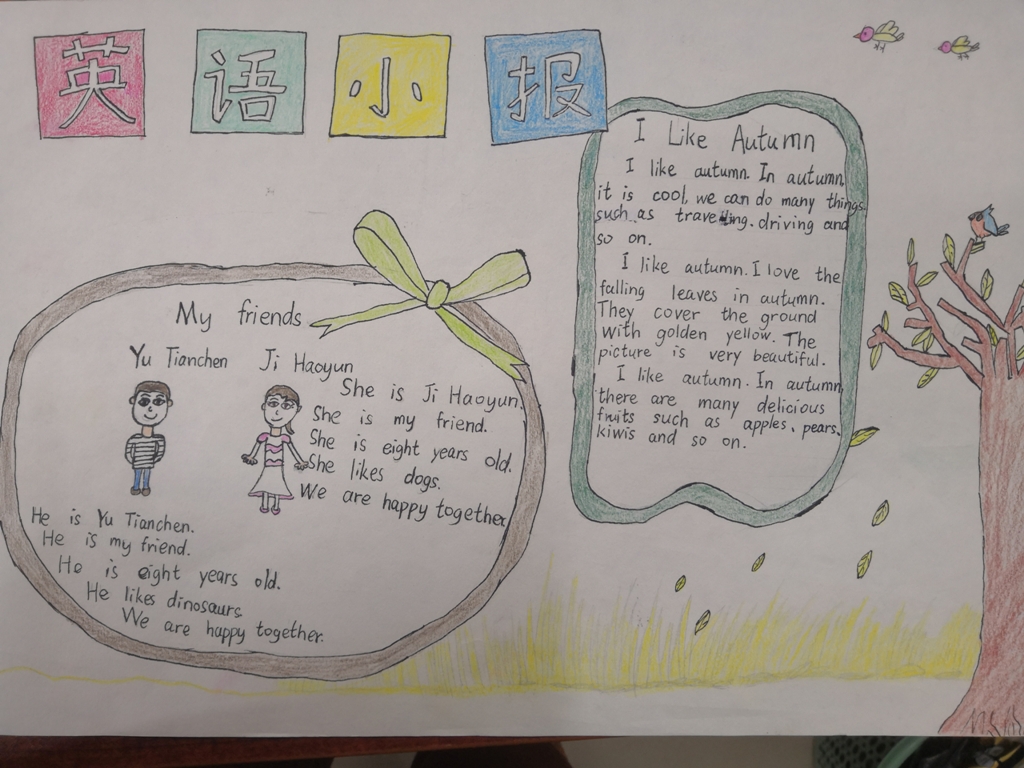 英语小报
I Like Autumn
I like autumn. In autumn,
it is cool, we can do many things
such as travelling. driving and
so on.
I like autumn. I love the
falling leaves in autumn.
They cover the ground
with golden yellow. The
picture is very beautiful.
I like autumn. In autumn,
there are many delicious
fruits such as apples、pears、
kiwis and so on.
My friends
Yu Tianchen Ji Haoyun
She is Ji Haoyun.
She is my friend.
She is eight years old.
She likes dogs.
We are happy together.
He is Yu Tianchen.
He is my friend.
He is eight years old.
He likes dinosaurs.
We are happy together.